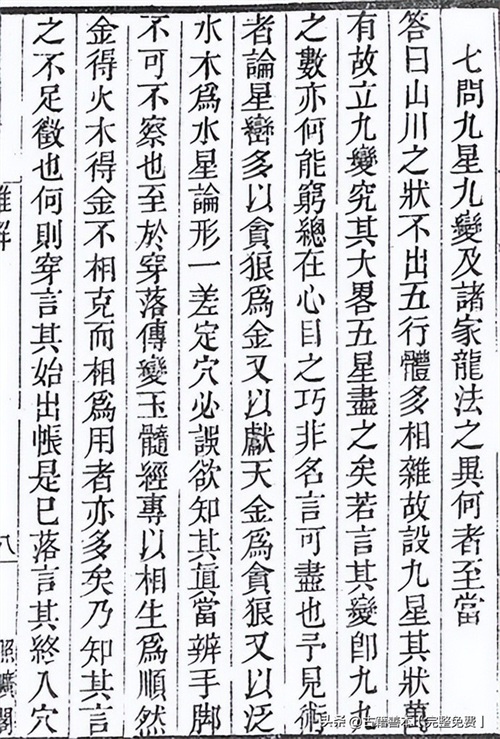 七問九星九變及諸家龍法之異何者至當
答曰山川之狀不出五行體多相雜故設九星其狀萬
有故立九變究其大畧五星盡之矣若言其變卽九九
之數亦何能窮總在心目之巧非名言可盡也予見術
者論星巒多以貪狼爲金又以獻天金爲貪狼又以泛
水木爲水星論形一差定穴必誤欲知其眞當辨手脚
不可不察也至於穿落傳變玉髓經專以相生爲順然
金得火木得金不相克而相爲用者亦多矣乃知其言
之不足徵也何則穿言其始出帳是已落言其終入穴
解
八
照曠閣
头条 @古籍善本（完整免费）